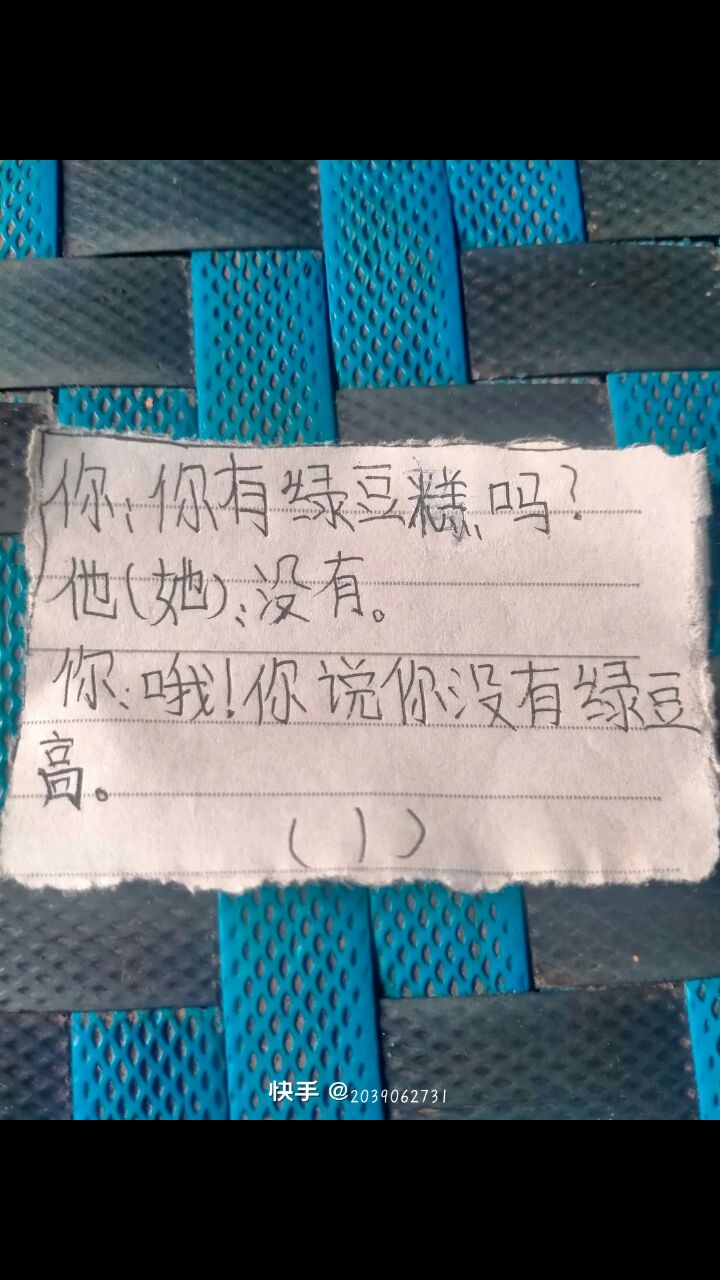 你：你有绿豆糕吗？
他（她）：没有。
你：哦！你说你没有绿豆
高。
（1）
快手 @2039062731